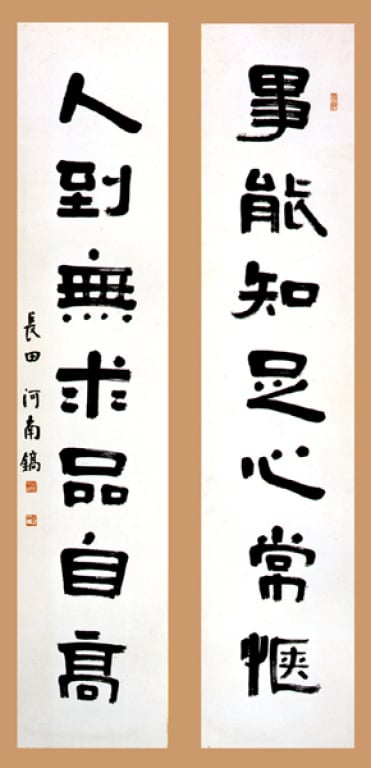 事能知足心常愜
人到無求品自高
長田 河南鎬